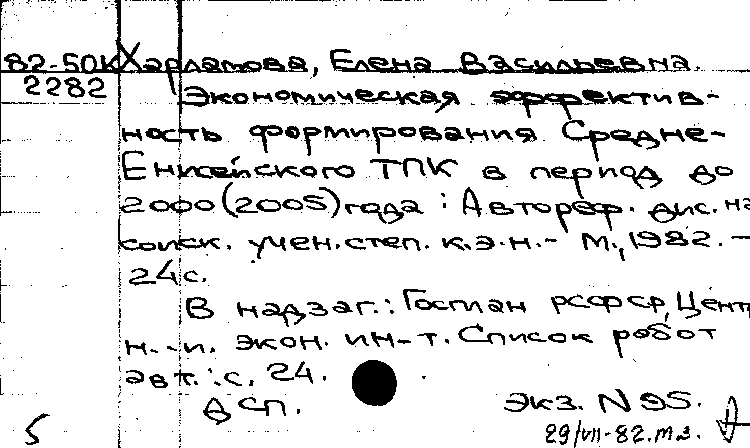 82-50К Харламова, Елена Васильевна.
2282 Экономическая эффектив-
ность формирования Средне-
Енисейского ТПК в период до
2000 (2005) года : Автореф. дис. на
соиск. учен. степ. к.э.н. - М., 1982. -
24 с.
В надзаг.: Госплан РСФСР, Центр.
н.-и. экон. ин-т. Список работ
авт.: с. 24.
ДСП. Экз. N 95.
5 29/VII-82. м.з.